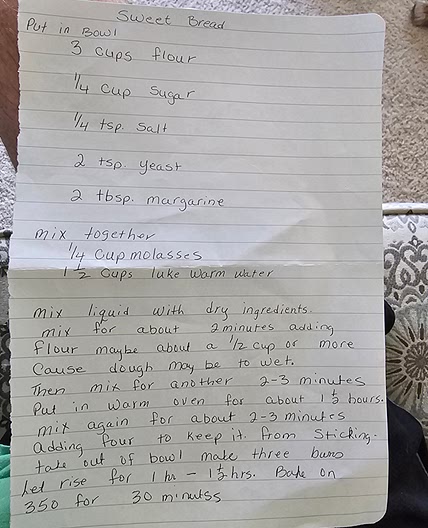 Sweet Bread
Put in Bowl
3 cups flour
1/4 cup sugar
1/4 tsp. salt
2 tsp. yeast
2 tbsp. margarine
mix together
1/4 cup molasses
1 1/2 cups luke warm water
mix liquid with dry ingredients.
mix for about 2 minutes adding
flour maybe about a 1/2 cup or more
Cause dough may be to wet.
Then mix for another 2-3 minutes
Put in warm oven for about 1 1/2 hours.
mix again for about 2-3 minutes
adding four to keep it from sticking.
take out of bowl make three buns
let rise for 1 hr - 1 1/2 hrs. Bake on
350 for 30 minutss